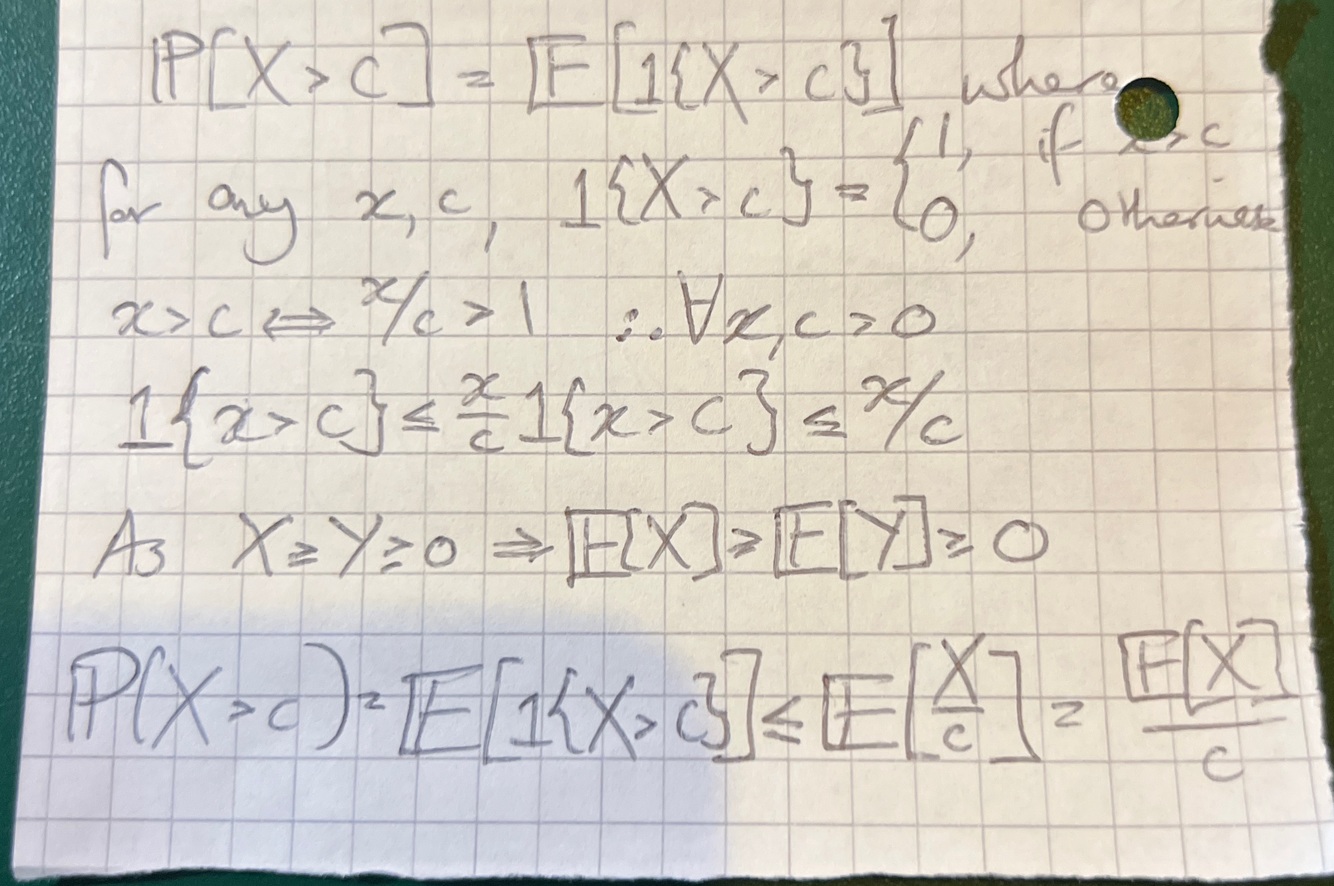 ℙ[X > c] = 𝔼[1{X > c}] where
for any x, c, 1{X > c} = {1, if x > c
0, otherwise
x > c ⇔ x/c > 1 ∴ ∀x, c > 0
1{x > c} ≤ x/c 1{x > c} ≤ x/c
As X ≥ Y ≥ 0 ⇒ 𝔼[X] ≥ 𝔼[Y] ≥ 0
ℙ(X > c) = 𝔼[1{X > c}] ≤ 𝔼[X/c] = 𝔼[X]/c